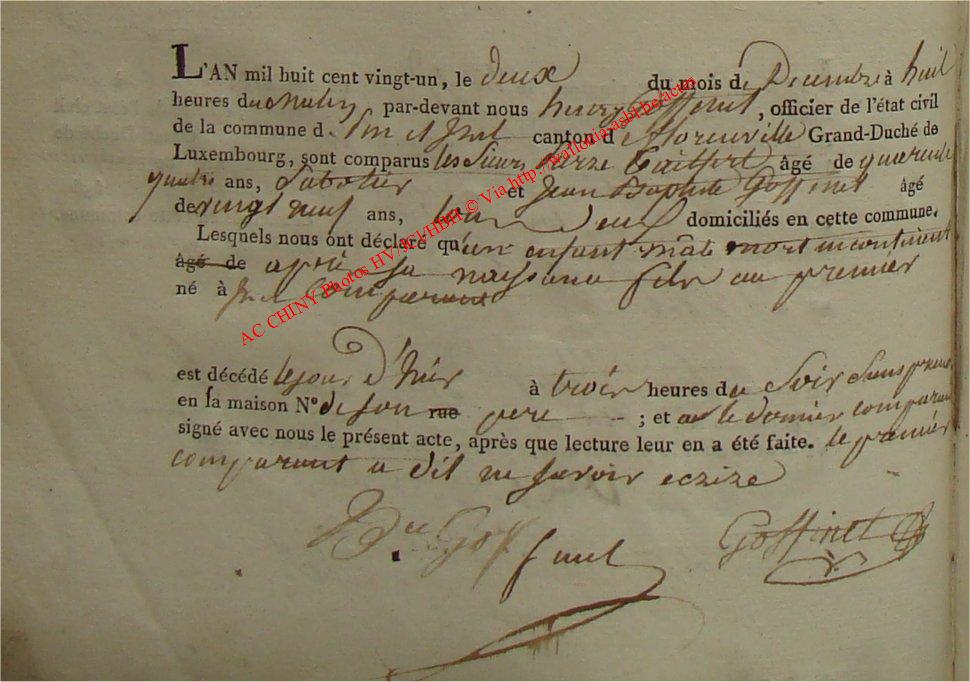 L'AN mil huit cent vingt-un, le deux du mois de Decembre à huit
heures du matin par-devant nous henry Goffinet, officier de l'état civil
de la commune d canton d florenville Grand-Duché de
Luxembourg, sont comparus les Sieurs âgé de quarente
quatre ans, Sabotier et Jean Baptiste Goffinet âgé
de vingt neuf ans, tous Deux domiciliés en cette commune.
Lesquels nous ont déclaré qu'un enfant mâle mort incontinent
âgé de après sa naissance fils au premier
né à comparant
est décédé le jour d'hier à trois heures du Soir Sans
en sa maison N° de son rue pere ; et le dernier comparant
signé avec nous le présent acte, après que lecture leur en a été faite. le premier
comparant a dit ne savoir ecrire
Goffinet
Goffinet
AC CHINY Photos HV/JCl/HBH © Via http://wallonia.asbl.be.actes